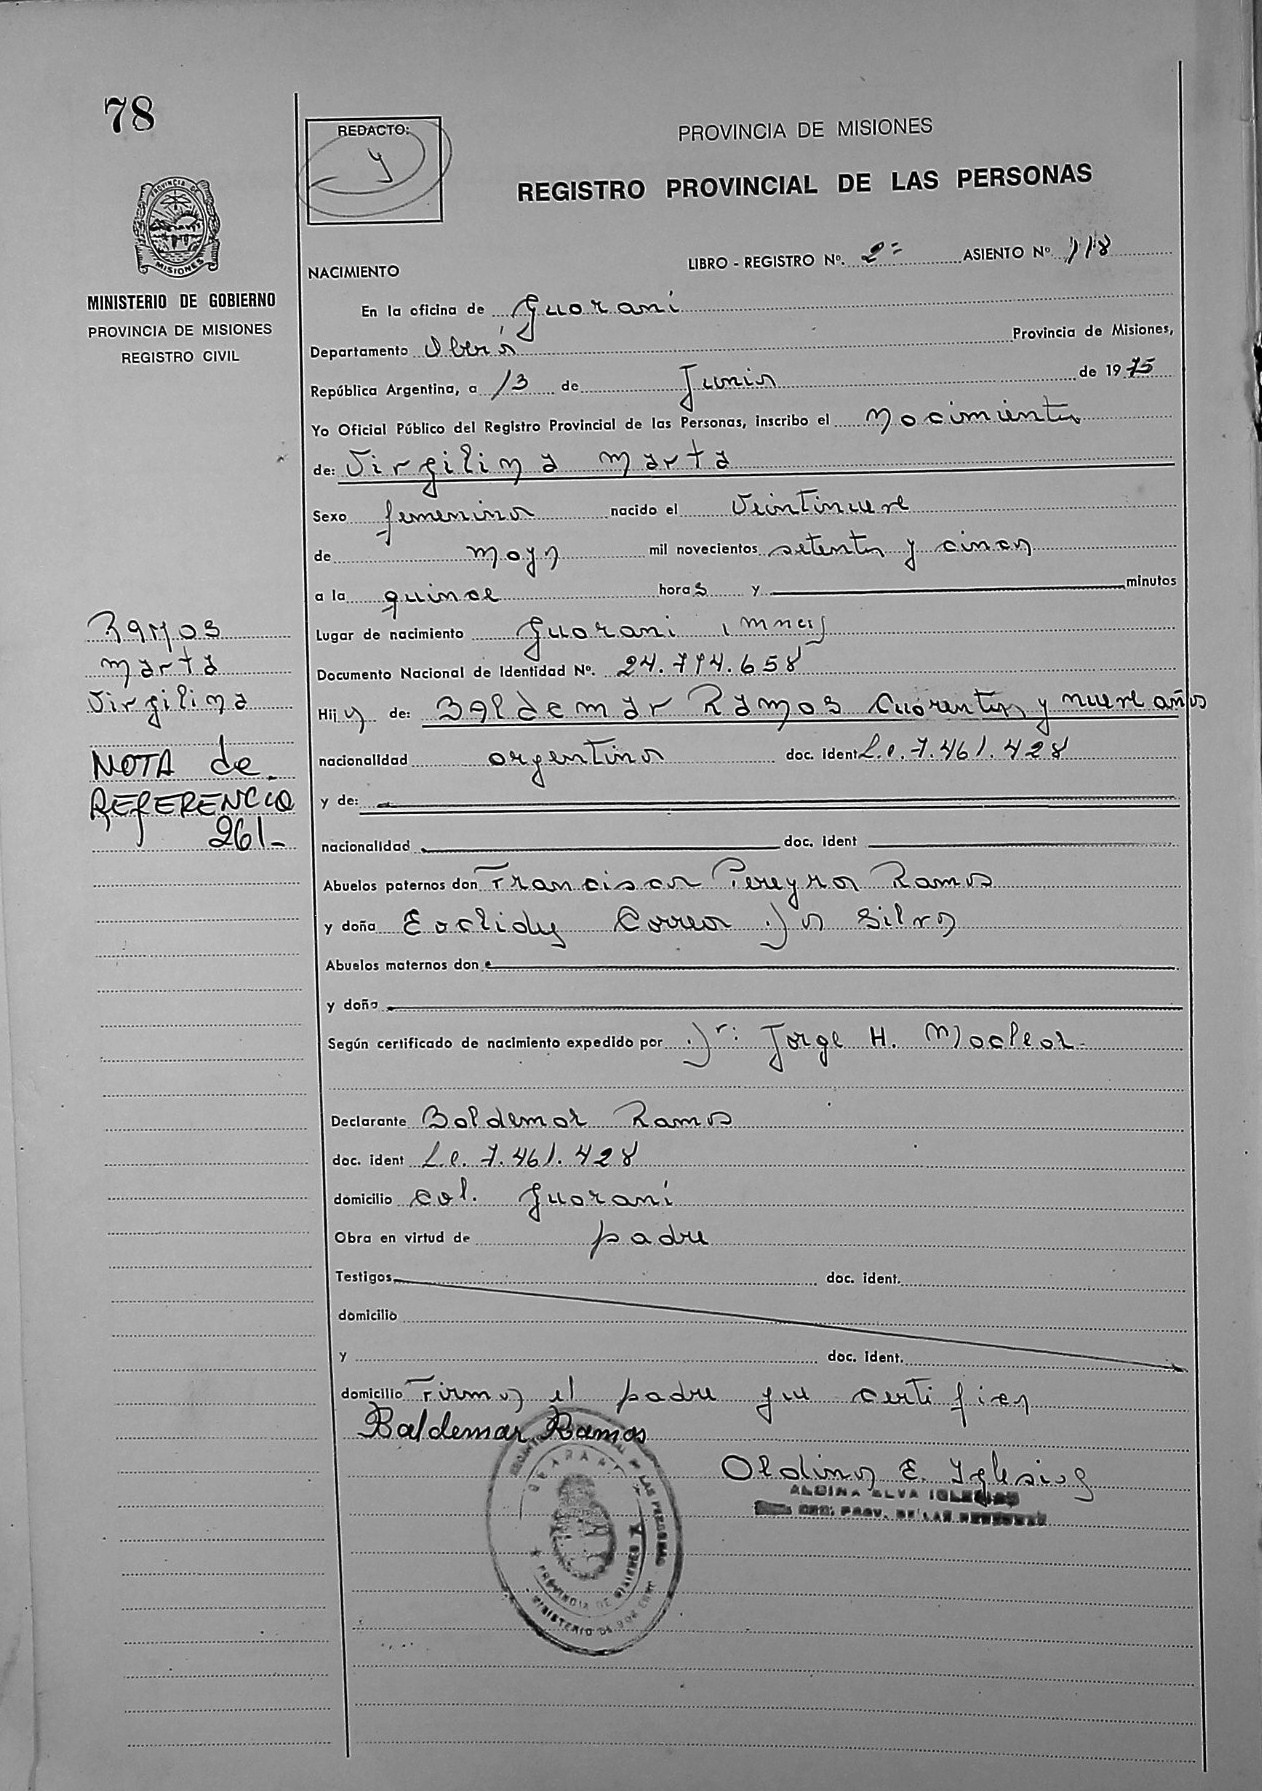 78
REDACTO:
y
PROVINCIA DE MISIONES
REGISTRO PROVINCIAL DE LAS PERSONAS
MINISTERIO DE GOBIERNO
PROVINCIA DE MISIONES
REGISTRO CIVIL
NACIMIENTO
LIBRO - REGISTRO Nº. 2= ASIENTO Nº. 118
En la oficina de Guarani
Departamento Oberá Provincia de Misiones,
República Argentina, a 13 de Junio de 1975
Yo Oficial Público del Registro Provincial de las Personas, inscribo el Nacimiento
de: Virgilina Marta
Sexo femenino nacido el Veintinueve
de Mayo mil novecientos setenta y cinco
a la quince horas y minutos
Lugar de nacimiento Guarani (Mnes)
Documento Nacional de Identidad Nº. 24.794.658
Hija de: Baldemar Ramos Cuarenta y nueve años
nacionalidad argentina doc. ident L.e. 7.461.428
y de:
nacionalidad doc. ident
Abuelos paternos don Francisco Pereyra Ramos
y doña Euclidy Correa Da Silva
Abuelos maternos don
y doña
Según certificado de nacimiento expedido por Dr: Jorge H.
Declarante Baldemar Ramos
doc. ident L.e. 7.461.428
domicilio Col. Guarani
Obra en virtud de padre
Testigos doc. ident.
domicilio
y doc. ident.
domicilio Firma el padre que certifica
Baldemar Ramos
E. Iglesias
ALBINA ELVA IGLESIAS
PROV. DE LAS PERSONAS
GUARANI
PROVINCIA DE MISIONES
MINISTERIO DE GOBIERNO
Ramos
Marta
Virgilina
NOTA de
REFERENCIA
261-